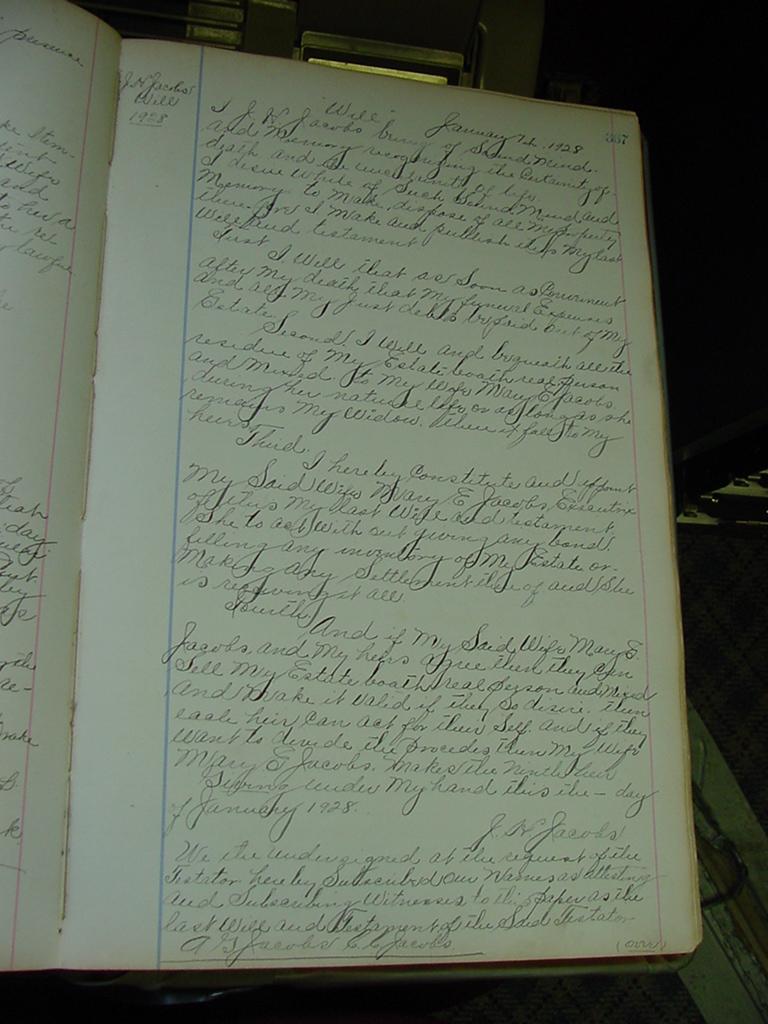 presence
ke Item-
Wife
and
to her a
lawful
day
J. H. Jacobs'
Will
1928
387
"Will"
January 7th, 1928
I J. H. Jacobs being of Sound Mind.
and Memory recognizing the Certainty of
death and the uncertainty of life.
I desire while of Such Sound Mind and
Memory to Make, dispose of all My property
there for I Make and publish this My last
Will and testament
First I Will that as Soon as Convenient
after My death, that My funeral Expenses
and all My Just debts be paid out of My
Estate.
Second. I Will and bequeath all the
residue of My Estate boath real person
and Mixed to My Wife Mary E Jacobs
during her natural life or as long as she
remains My Widow. then it falls to My
heirs.
Third.
I hereby Constitute and appoint
My Said Wife Mary E. Jacobs, Executrix
of this My last Will and testament.
She to act With out giving any bond.
filling any inventory of My Estate or.
Making any Settlement there of and She
is receiving it all.
Fourth
And if My Said Wife Mary E.
Jacobs, and My heirs agree then they Can
Sell My Estate boath real person and Mixed
And Make it Valid if they So desire. then
each heir Can act for their Self. and if they
Want to devide the procedes, then My Wife
Mary E Jacobs. Makes the Ninth heir
Giving under My hand this the — day
of January 1928.
J. H. Jacobs
We the undersigned at the request of the
Testator hereby Subscribed Our Names as attesting
and Subscribing Witnesses to this paper as the
last Will and Testament of the Said Testator
A G Jacobs C. C. Jacobs
(over)